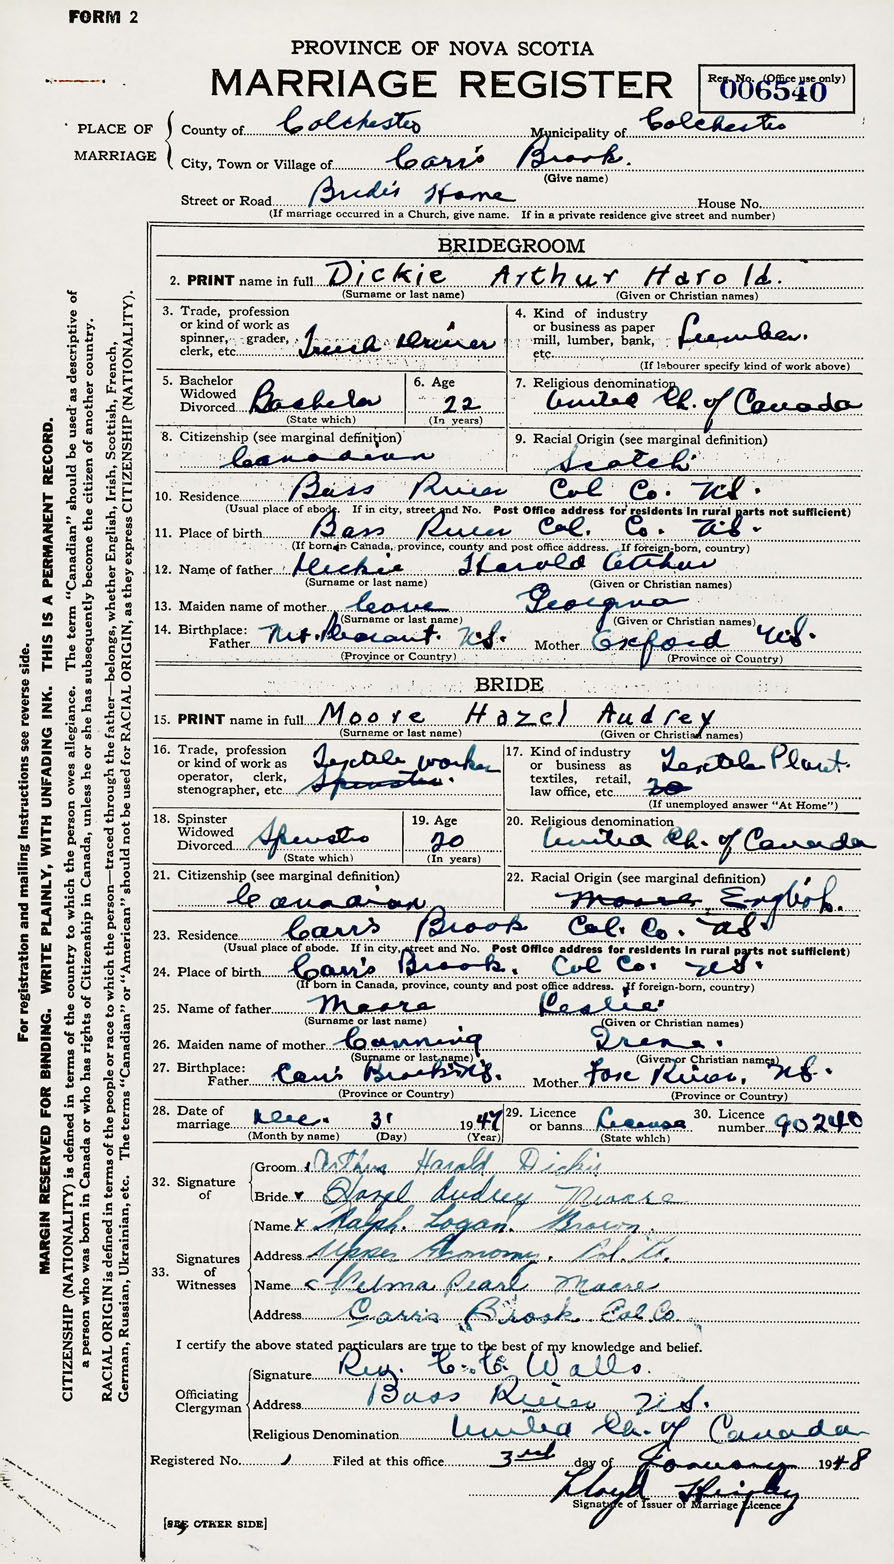 FORM 2
PROVINCE OF NOVA SCOTIA
MARRIAGE REGISTER
Reg. No. (Office use only)
006540
PLACE OF MARRIAGE
County of Colchester Municipality of Colchester
City, Town or Village of Carr's Brook.
(Give name)
Street or Road Bride's Home House No.
(If marriage occurred in a Church, give name. If in a private residence give street and number)
BRIDEGROOM
2. PRINT name in full Dickie Arthur Harold.
(Surname or last name) (Given or Christian names)
3. Trade, profession or kind of work as spinner, grader, clerk, etc. Truck Driver
4. Kind of industry or business as paper mill, lumber, bank, etc. Lumber.
(If labourer specify kind of work above)
5. Bachelor Widowed Divorced Bachelor
(State which)
6. Age 22
(In years)
7. Religious denomination United Ch. of Canada
8. Citizenship (see marginal definition) Canadian
9. Racial Origin (see marginal definition) Scotch
10. Residence Bass River Col Co. N.S.
(Usual place of abode. If in city, street and No. Post Office address for residents in rural parts not sufficient)
11. Place of birth Bass River Col. Co. N.S.
(If born in Canada, province, county and post office address. If foreign-born, country)
12. Name of father Dickie Harold Arthur
(Surname or last name) (Given or Christian names)
13. Maiden name of mother Cove Georgina
(Surname or last name) (Given or Christian names)
14. Birthplace: Father Mt. Pleasant. N.S. Mother Oxford N.S.
(Province or Country) (Province or Country)
BRIDE
15. PRINT name in full Moore Hazel Audrey
(Surname or last name) (Given or Christian names)
16. Trade, profession or kind of work as operator, clerk, stenographer, etc. Textile worker Spinster.
17. Kind of industry or business as textiles, retail, law office, etc. Textile Plant. 20
(If unemployed answer "At Home")
18. Spinster Widowed Divorced Spinster
(State which)
19. Age 20
(In years)
20. Religious denomination United Ch. of Canada
21. Citizenship (see marginal definition) Canadian
22. Racial Origin (see marginal definition) English.
23. Residence Carr's Brook Col. Co. N.S.
(Usual place of abode. If in city, street and No. Post Office address for residents in rural parts not sufficient)
24. Place of birth Carr's Brook. Col Co. N.S.
(If born in Canada, province, county and post office address. If foreign-born, country)
25. Name of father Moore Leslie
(Surname or last name) (Given or Christian names)
26. Maiden name of mother Canning Irene.
(Surname or last name) (Given or Christian names)
27. Birthplace: Father Carr's Brook N.S. Mother Fox River, N.S.
(Province or Country) (Province or Country)
28. Date of marriage Dec. 31 1947
(Month by name) (Day) (Year)
29. Licence or banns License
(State which)
30. Licence number 90240
32. Signature of
Groom Arthur Harold Dickie
Bride Hazel Audrey Moore
33. Signatures of Witnesses
Name x Ralph. Logan Brown.
Address Upper Economy, Col. Co.
Name Velma Pearl Moore
Address Carrs Brook Col Co
I certify the above stated particulars are true to the best of my knowledge and belief.
Officiating Clergyman
Signature Rev. C. C. Walls.
Address Bass River N.S.
Religious Denomination United Ch. of Canada
Registered No. 1 Filed at this office 3rd day of January 1948
Lloyd
Signature of Issuer of Marriage Licence
[SEE OTHER SIDE]
For registration and mailing instructions see reverse side.
MARGIN RESERVED FOR BINDING. WRITE PLAINLY, WITH UNFADING INK. THIS IS A PERMANENT RECORD.
CITIZENSHIP (NATIONALITY) is defined in terms of the country to which the person owes allegiance. The term "Canadian" should be used as descriptive of
a person who was born in Canada or who has rights of Citizenship in Canada, unless he or she has subsequently become the citizen of another country.
RACIAL ORIGIN is defined in terms of the people or race to which the person—traced through the father—belongs, whether English, Irish, Scottish, French,
German, Russian, Ukrainian, etc. The terms "Canadian" or "American" should not be used for RACIAL ORIGIN, as they express CITIZENSHIP (NATIONALITY).